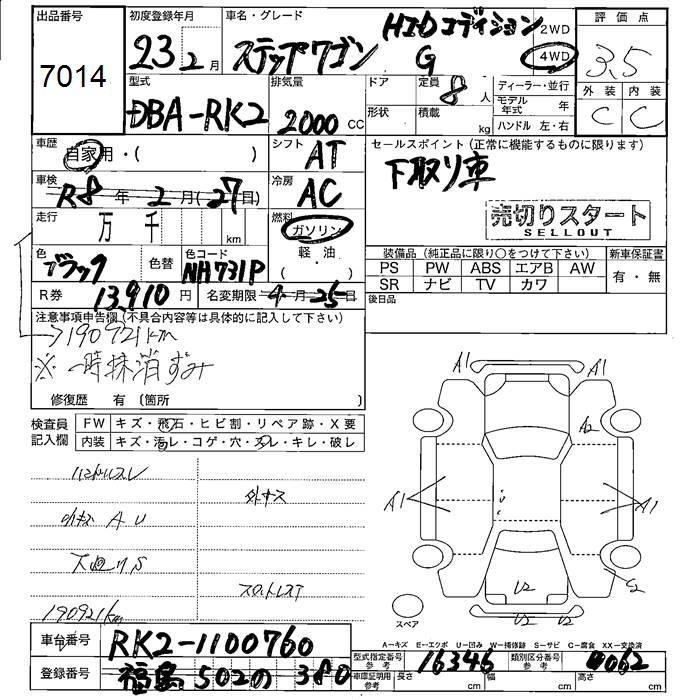 出品番号
7014
初度登録年月
23 2月
車名・グレード
ステップワゴン HIDエディション G
2WD
4WD
評価点
3.5
外装 内装
C C
型式
DBA-RK2
排気量
2000 CC
ドア
形状
定員 8人
積載 kg
ディーラー・並行
モデル年式 年
ハンドル 左・右
車歴
自家用・( )
シフト
AT
セールスポイント(正常に機能するものに限ります)
下取り車
車検
R8年 2月(27日)
冷房
AC
走行
万 千 km
燃料
ガソリン
軽・油
( )
売切りスタート
SELLOUT
色
ブラック
色替
色コード
NH731P
装備品(純正品に限り○をつけて下さい)
PS PW ABS エアB AW
SR ナビ TV カワ
新車保証書
有・無
R券 13,910円
名変期限 4月25日
後日品
注意事項申告欄(不具合内容等は具体的に記入して下さい)
190921km
※一時抹消ずみ
修復歴 有(箇所 )
検査員記入欄
FW キズ・飛石・ヒビ割・リペア跡・X要
内装 キズ・汚レ・コゲ・穴・スレ・キレ・破レ
ハンドルスレ
小キズ A U
下廻りS
190921km
A1 A1
A2
A1 A1
U2 U2
U2 U2
スペア
A-キズ E-エクボ U-凹み W-補修跡 S-サビ C-腐食 XX-交換済
車台番号
RK2-1100760
登録番号
福島 502の 380
型式指定番号 参考
16346
類別区分番号 参考
0062
車庫証明用 参考
長さ cm
幅 cm
高さ cm